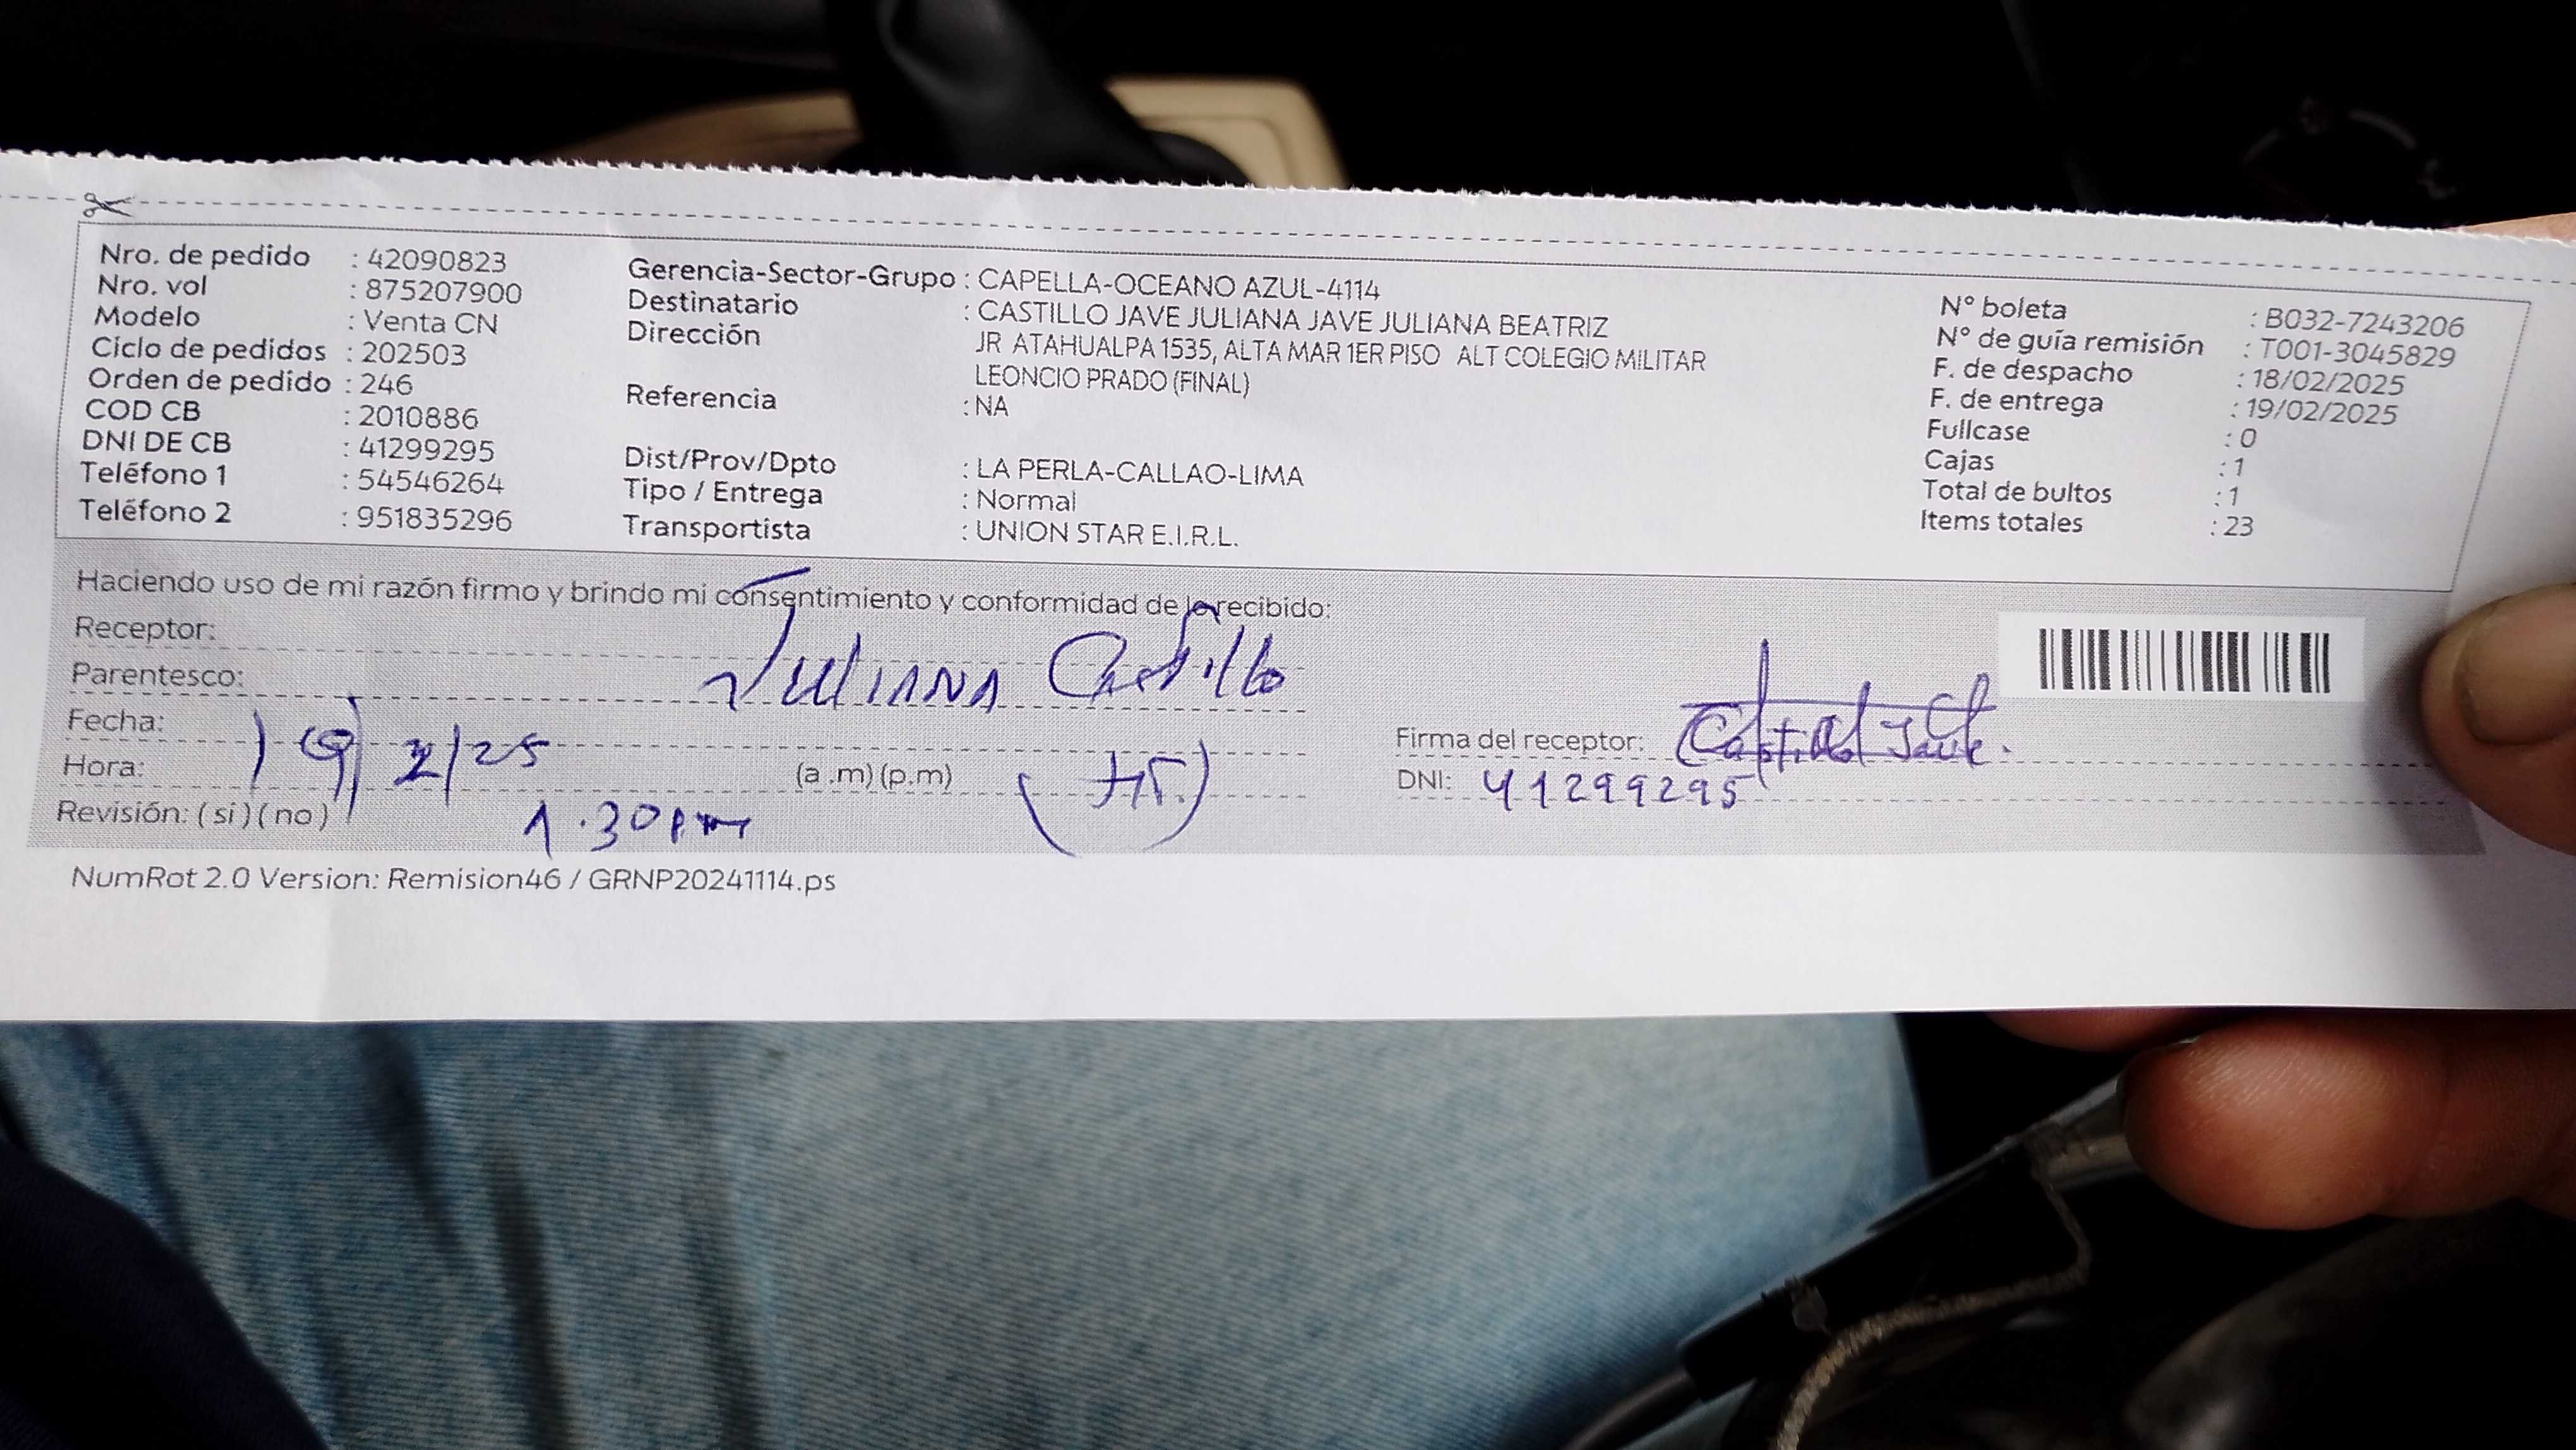 Nro. de pedido : 42090823
Nro. vol : 875207900
Modelo : Venta CN
Ciclo de pedidos : 202503
Orden de pedido : 246
COD CB : 2010886
DNI DE CB : 41299295
Teléfono 1 : 54546264
Teléfono 2 : 951835296
Gerencia-Sector-Grupo : CAPELLA-OCEANO AZUL-4114
Destinatario : CASTILLO JAVE JULIANA JAVE JULIANA BEATRIZ
Dirección JR ATAHUALPA 1535, ALTA MAR 1ER PISO ALT COLEGIO MILITAR
LEONCIO PRADO (FINAL)
Referencia : NA
Dist/Prov/Dpto : LA PERLA-CALLAO-LIMA
Tipo / Entrega : Normal
Transportista : UNION STAR E.I.R.L.
N° boleta : B032-7243206
N° de guía remisión : T001-3045829
F. de despacho : 18/02/2025
F. de entrega : 19/02/2025
Fullcase : 0
Cajas : 1
Total de bultos : 1
Items totales : 23
Haciendo uso de mi razón firmo y brindo mi consentimiento y conformidad de lo recibido:
Receptor:
Parentesco: Juliana Castillo
Fecha: 19/2/25
Hora: (a .m) (p.m)
Revisión: ( si ) ( no ) 1.30 pm
Firma del receptor: Castillo Jave.
DNI: 41299295
NumRot 2.0 Version: Remision46 / GRNP20241114.ps